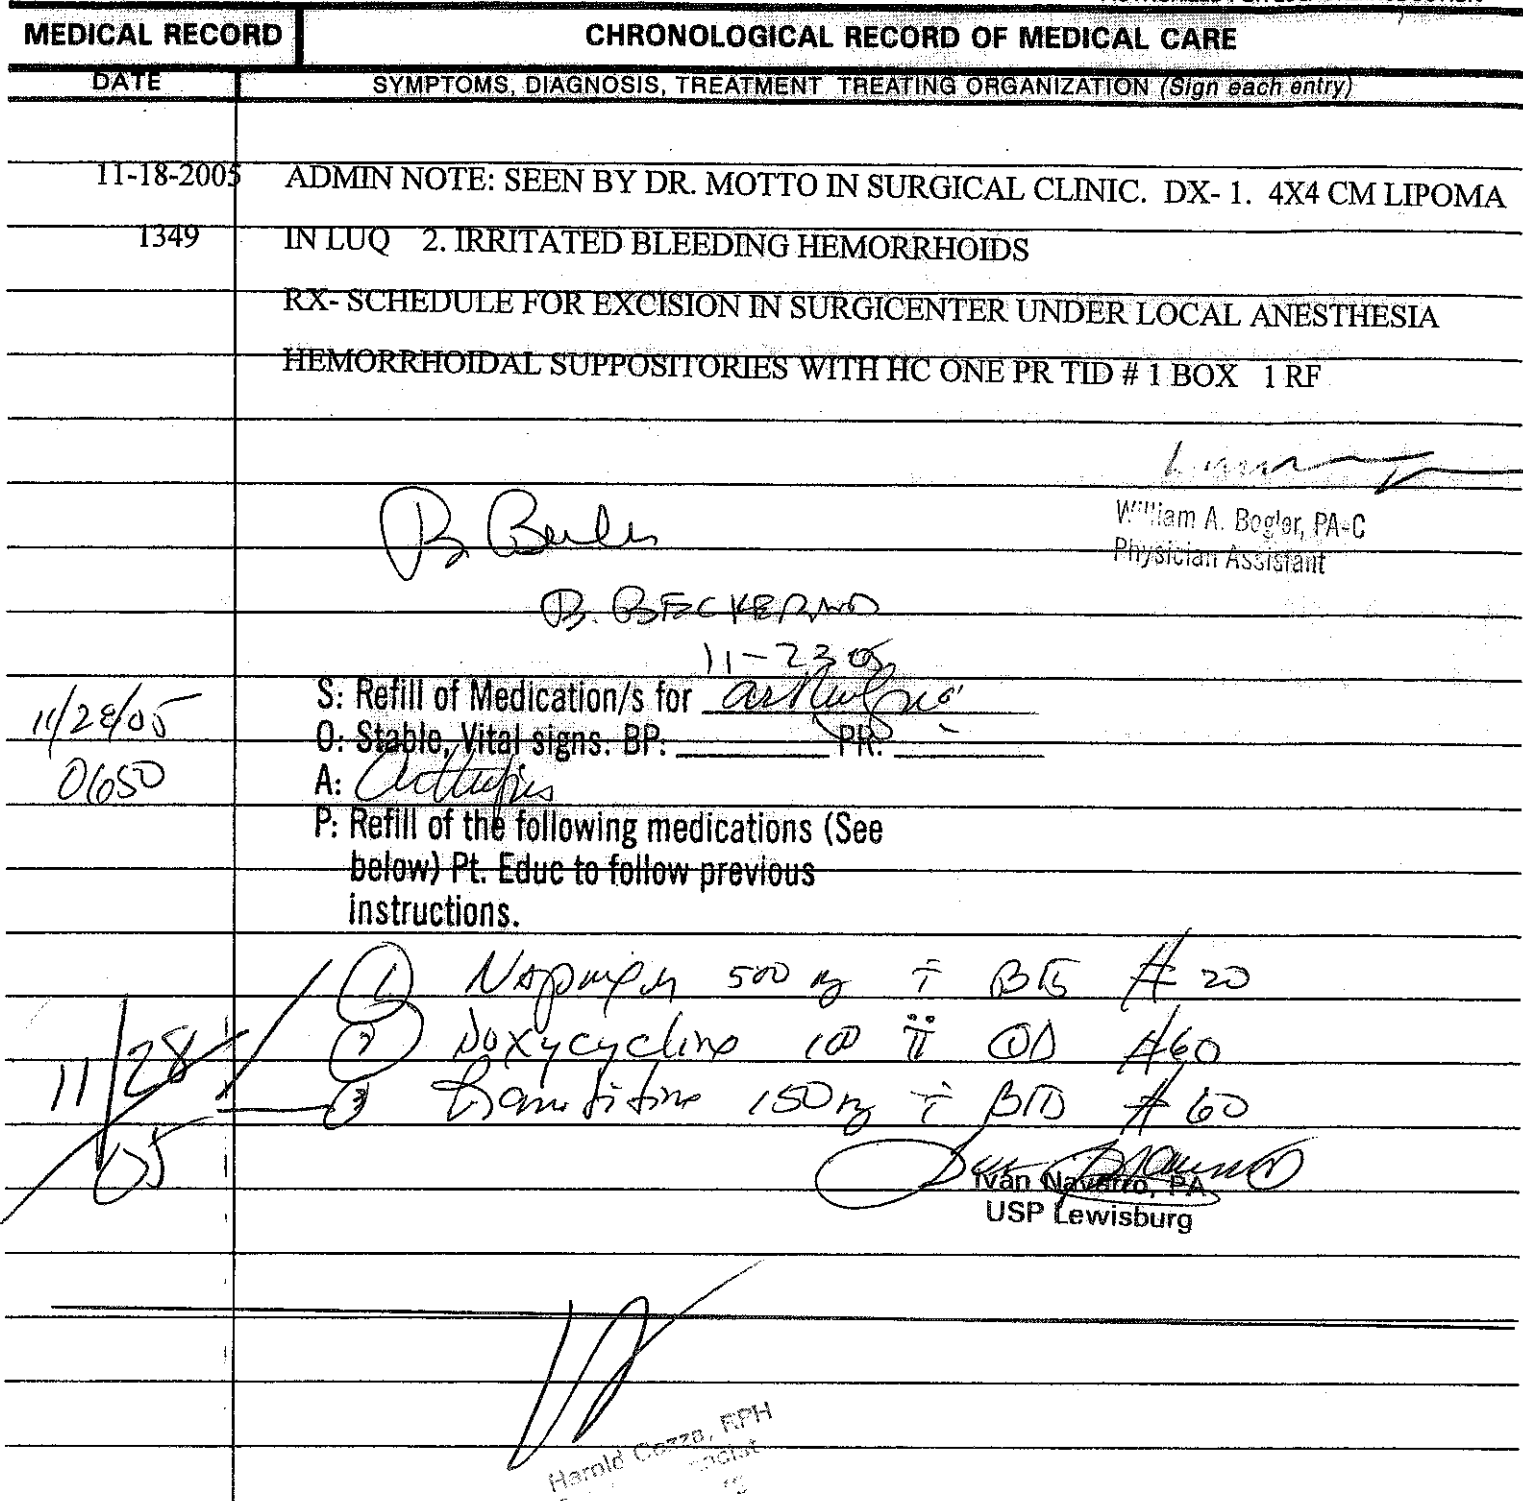 MEDICAL RECORD
CHRONOLOGICAL RECORD OF MEDICAL CARE
DATE
SYMPTOMS, DIAGNOSIS, TREATMENT TREATING ORGANIZATION (Sign each entry)
11-18-2005 ADMIN NOTE: SEEN BY DR. MOTTO IN SURGICAL CLINIC. DX- 1. 4X4 CM LIPOMA
1349 IN LUQ 2. IRRITATED BLEEDING HEMORRHOIDS
RX- SCHEDULE FOR EXCISION IN SURGICENTER UNDER LOCAL ANESTHESIA
HEMORRHOIDAL SUPPOSITORIES WITH HC ONE PR TID # 1 BOX 1 RF
William A. Bogler, PA-C
Physician Assistant
B.
11-23 05
S: Refill of Medication/s for
11/28/05
O: Stable, Vital signs: BP: PR:
0650
A:
P: Refill of the following medications (See
below) Pt. Educ to follow previous
instructions.
1 500 BID # 20
11/28/05
2 Doxycycline 100 ii QD #60
3 150 i BID # 60
Ivan Navarro, PA
USP Lewisburg
Harold Cozza, RPH